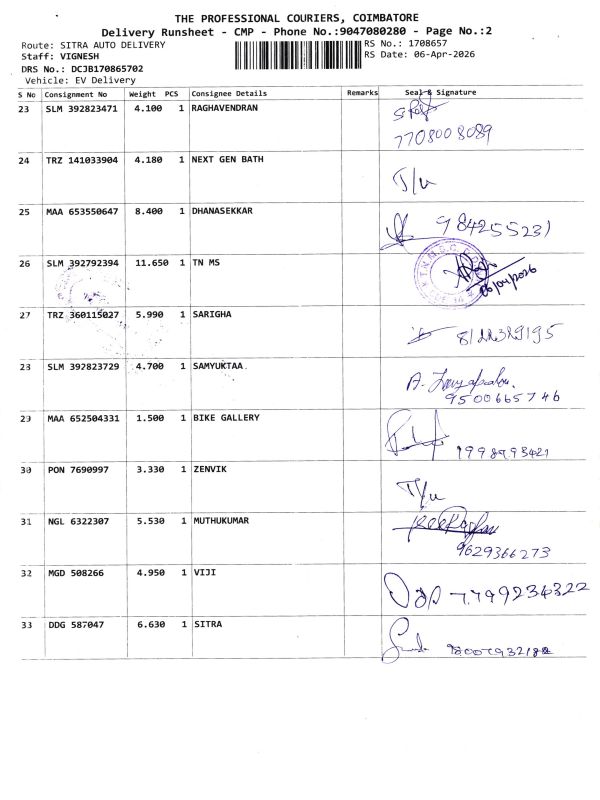 THE PROFESSIONAL COURIERS, COIMBATORE
Delivery Runsheet - CMP - Phone No.:9047080280 - Page No.:2
Route: SITRA AUTO DELIVERY
RS No.: 1708657
Staff: VIGNESH
RS Date: 06-Apr-2026
DRS No.: DCJB170865702
Vehicle: EV Delivery
S No Consignment No Weight PCS Consignee Details Remarks Seal & Signature
23 SLM 392823471 4.100 1 RAGHAVENDRAN
7708008089
24 TRZ 141033904 4.180 1 NEXT GEN BATH
T/u
25 MAA 653550647 8.400 1 DHANASEKKAR
984255231
26 SLM 392792394 11.650 1 TN MS
06/04/2026
27 TRZ 360115027 5.990 1 SARIGHA
8122329195
23 SLM 392823729 4.700 1 SAMYUKTAA
9500665746
29 MAA 652504331 1.500 1 BIKE GALLERY
30 PON 7690997 3.330 1 ZENVIK
T/u
31 NGL 6322307 5.530 1 MUTHUKUMAR
9629366273
32 MGD 508266 4.950 1 VIJI
7799234322
33 DDG 587047 6.630 1 SITRA